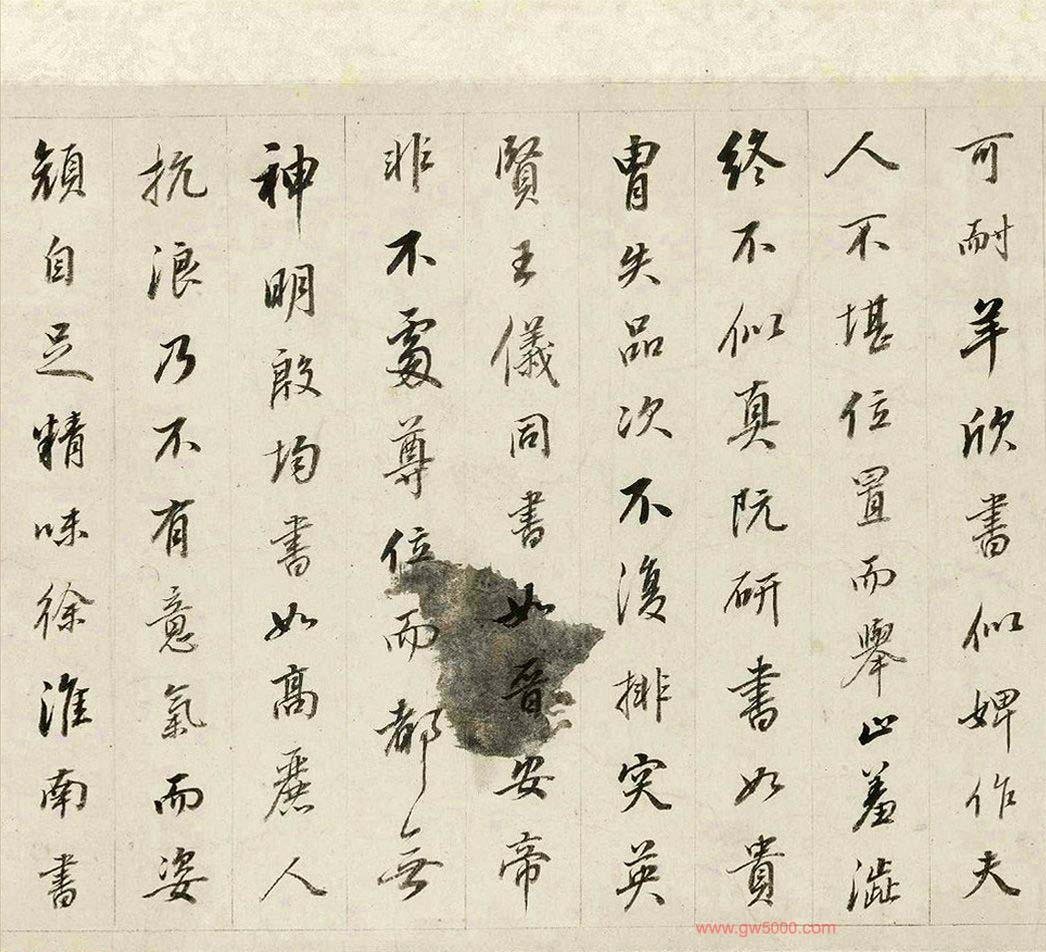 可耐羊欣書似婢作夫
人不堪位置而舉止羞澁
終不似真阮研書如貴
胄失品次不復排突英
賢王儀同書如晉安帝
非不處尊位而都無
神明殷均書如高麗人
抗浪乃不有意氣而姿
顔自足精味徐淮南書
www.gw5000.com